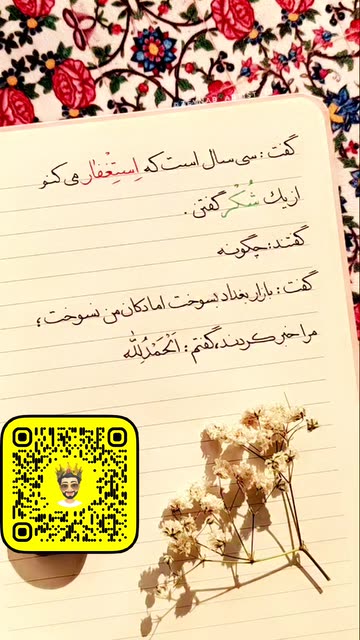 گفت: سی سال است که اِستِغْفار می کنو
از یک شُکْر گفتن.
گفتند: چگونه
گفت: بازار بغداد بسوخت اما دکان من نسوخت؛
مرا خبر کردند، گفتم: اَلْحَمْدُلِلّٰه